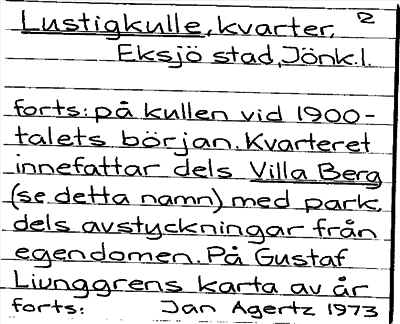 Lustigkulle, kvarter, 2
Eksjö stad, Jönk.l.
forts: på kullen vid 1900-
talets början. Kvarteret
innefattar dels Villa Berg
(se detta namn) med park,
dels avstyckningar från
egendomen. På Gustaf
Ljunggrens karta av år
forts: Jan Agertz 1973